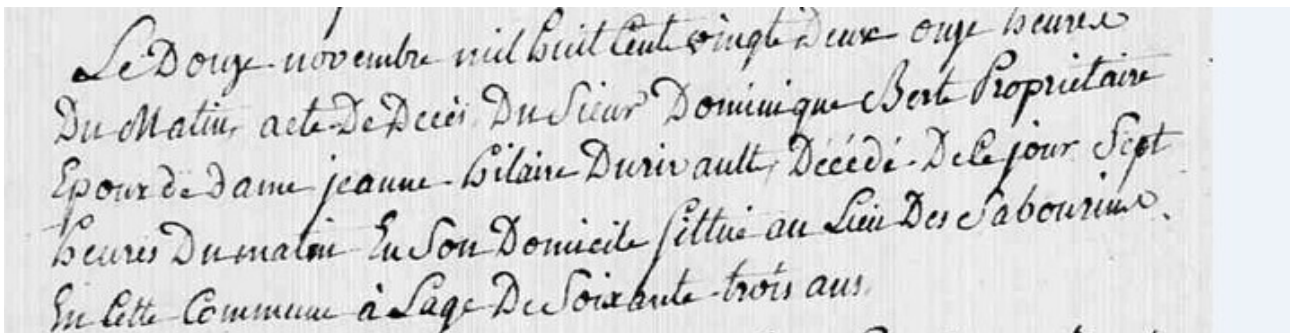 Le Douze novembre mil huit Cent vingt Deux onze heures
Du Matin, acte De Décès, Du Sieur Dominique Berte Propriétaire
Epoux de Dame jeanne hilaire Durivault, Décédé De Ce jour Sept
heures Du matin En Son Domicile Sittué au Lieu Des Sabourins
En Cette Commune à Lage De Soixante-trois ans.